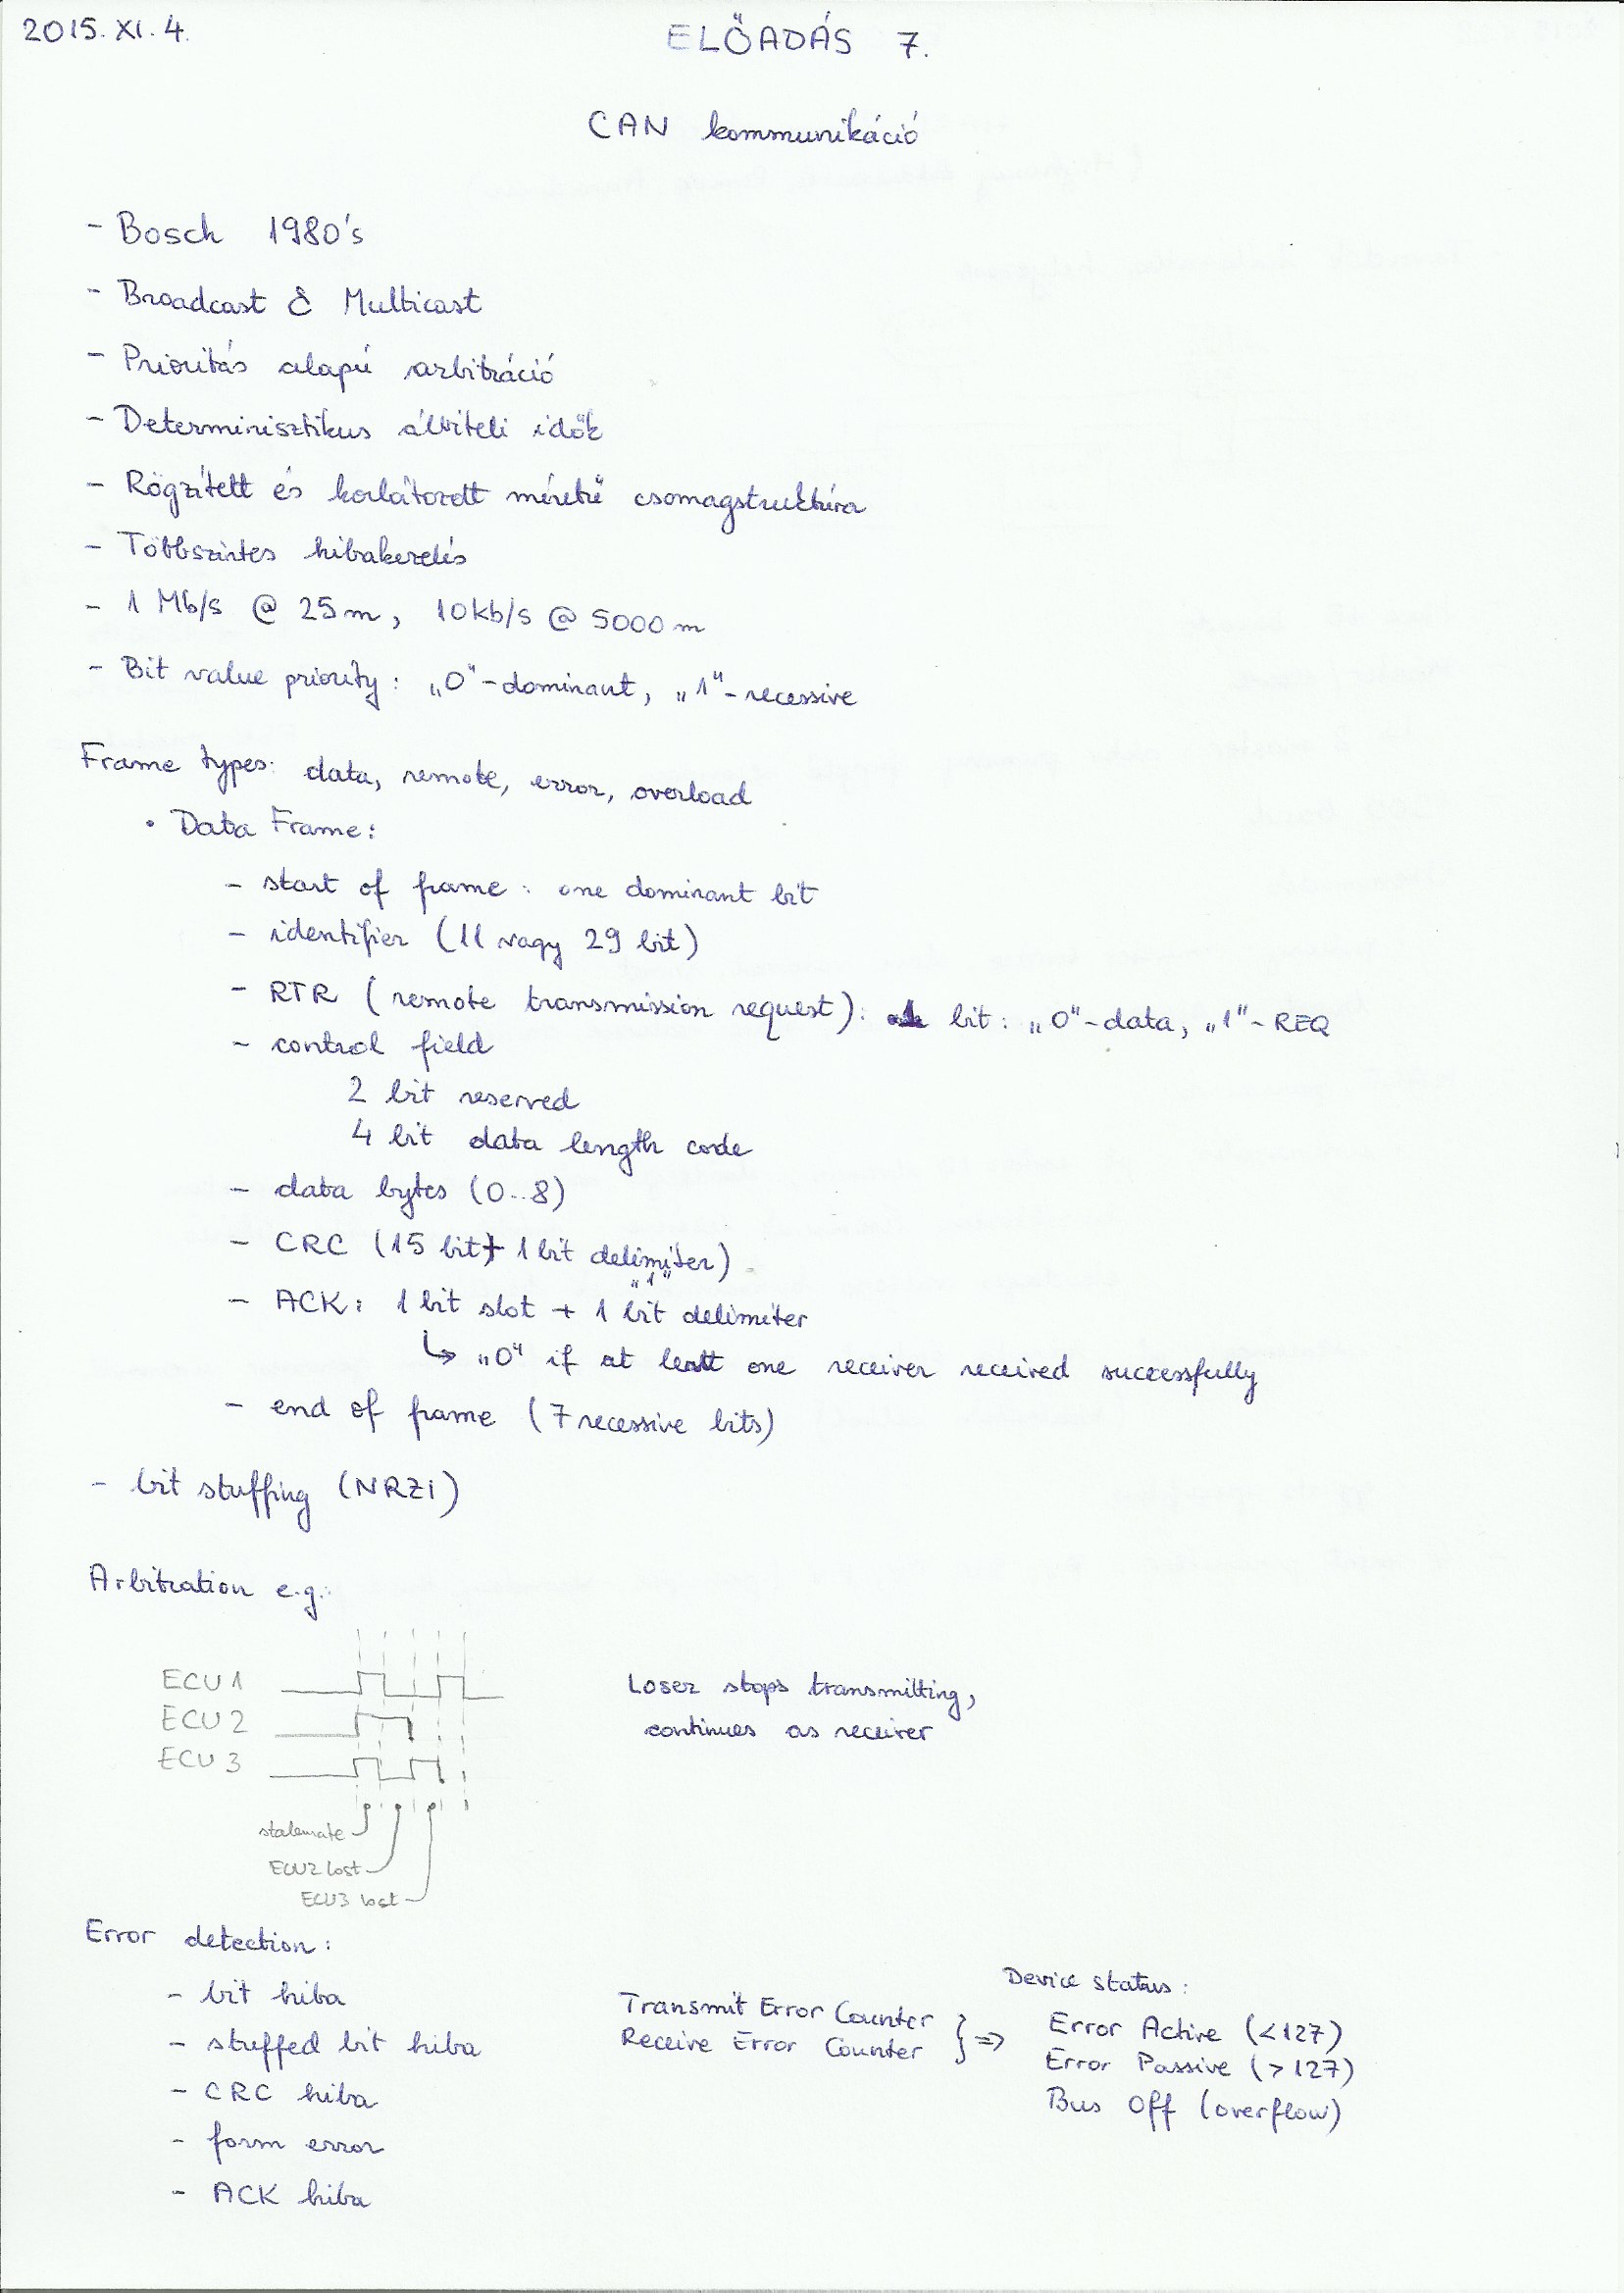 2015. XI. 4.
ELŐADÁS 7.
CAN kommunikáció
- Bosch 1980's
- Broadcast & Multicast
- Prioritás alapú arbitráció
- Determinisztikus átviteli idők
- Rögzített és korlátozott méretű csomagstruktúra
- Többszintes hibakezelés
- 1 Mb/s @ 25m, 10kb/s @ 5000m
- Bit value priority: „0"-dominant, „1"-recessive
Frame types: data, remote, error, overload
• Data Frame:
- start of frame: one dominant bit
- identifier (11 vagy 29 bit)
- RTR (remote transmission request): 1 bit: „0"-data, „1"-REQ
- control field
2 bit reserved
4 bit data length code
- data bytes (0..8)
- CRC (15 bit + 1 bit delimiter)
„1"
- ACK: 1 bit slot + 1 bit delimiter
↳ „0" if at least one receiver received successfully
- end of frame (7 recessive bits)
- bit stuffing (NRZI)
Arbitration e.g.:
ECU 1
ECU 2
ECU 3
Loser stops transmitting,
continues as receiver
stalemate
ECU2 lost
ECU3 lost
Error detection:
- bit hiba
- stuffed bit hiba
- CRC hiba
- form error
- ACK hiba
Transmit Error Counter
Receive Error Counter } ⇒
Device status:
Error Active (<127)
Error Passive (>127)
Bus Off (overflow)